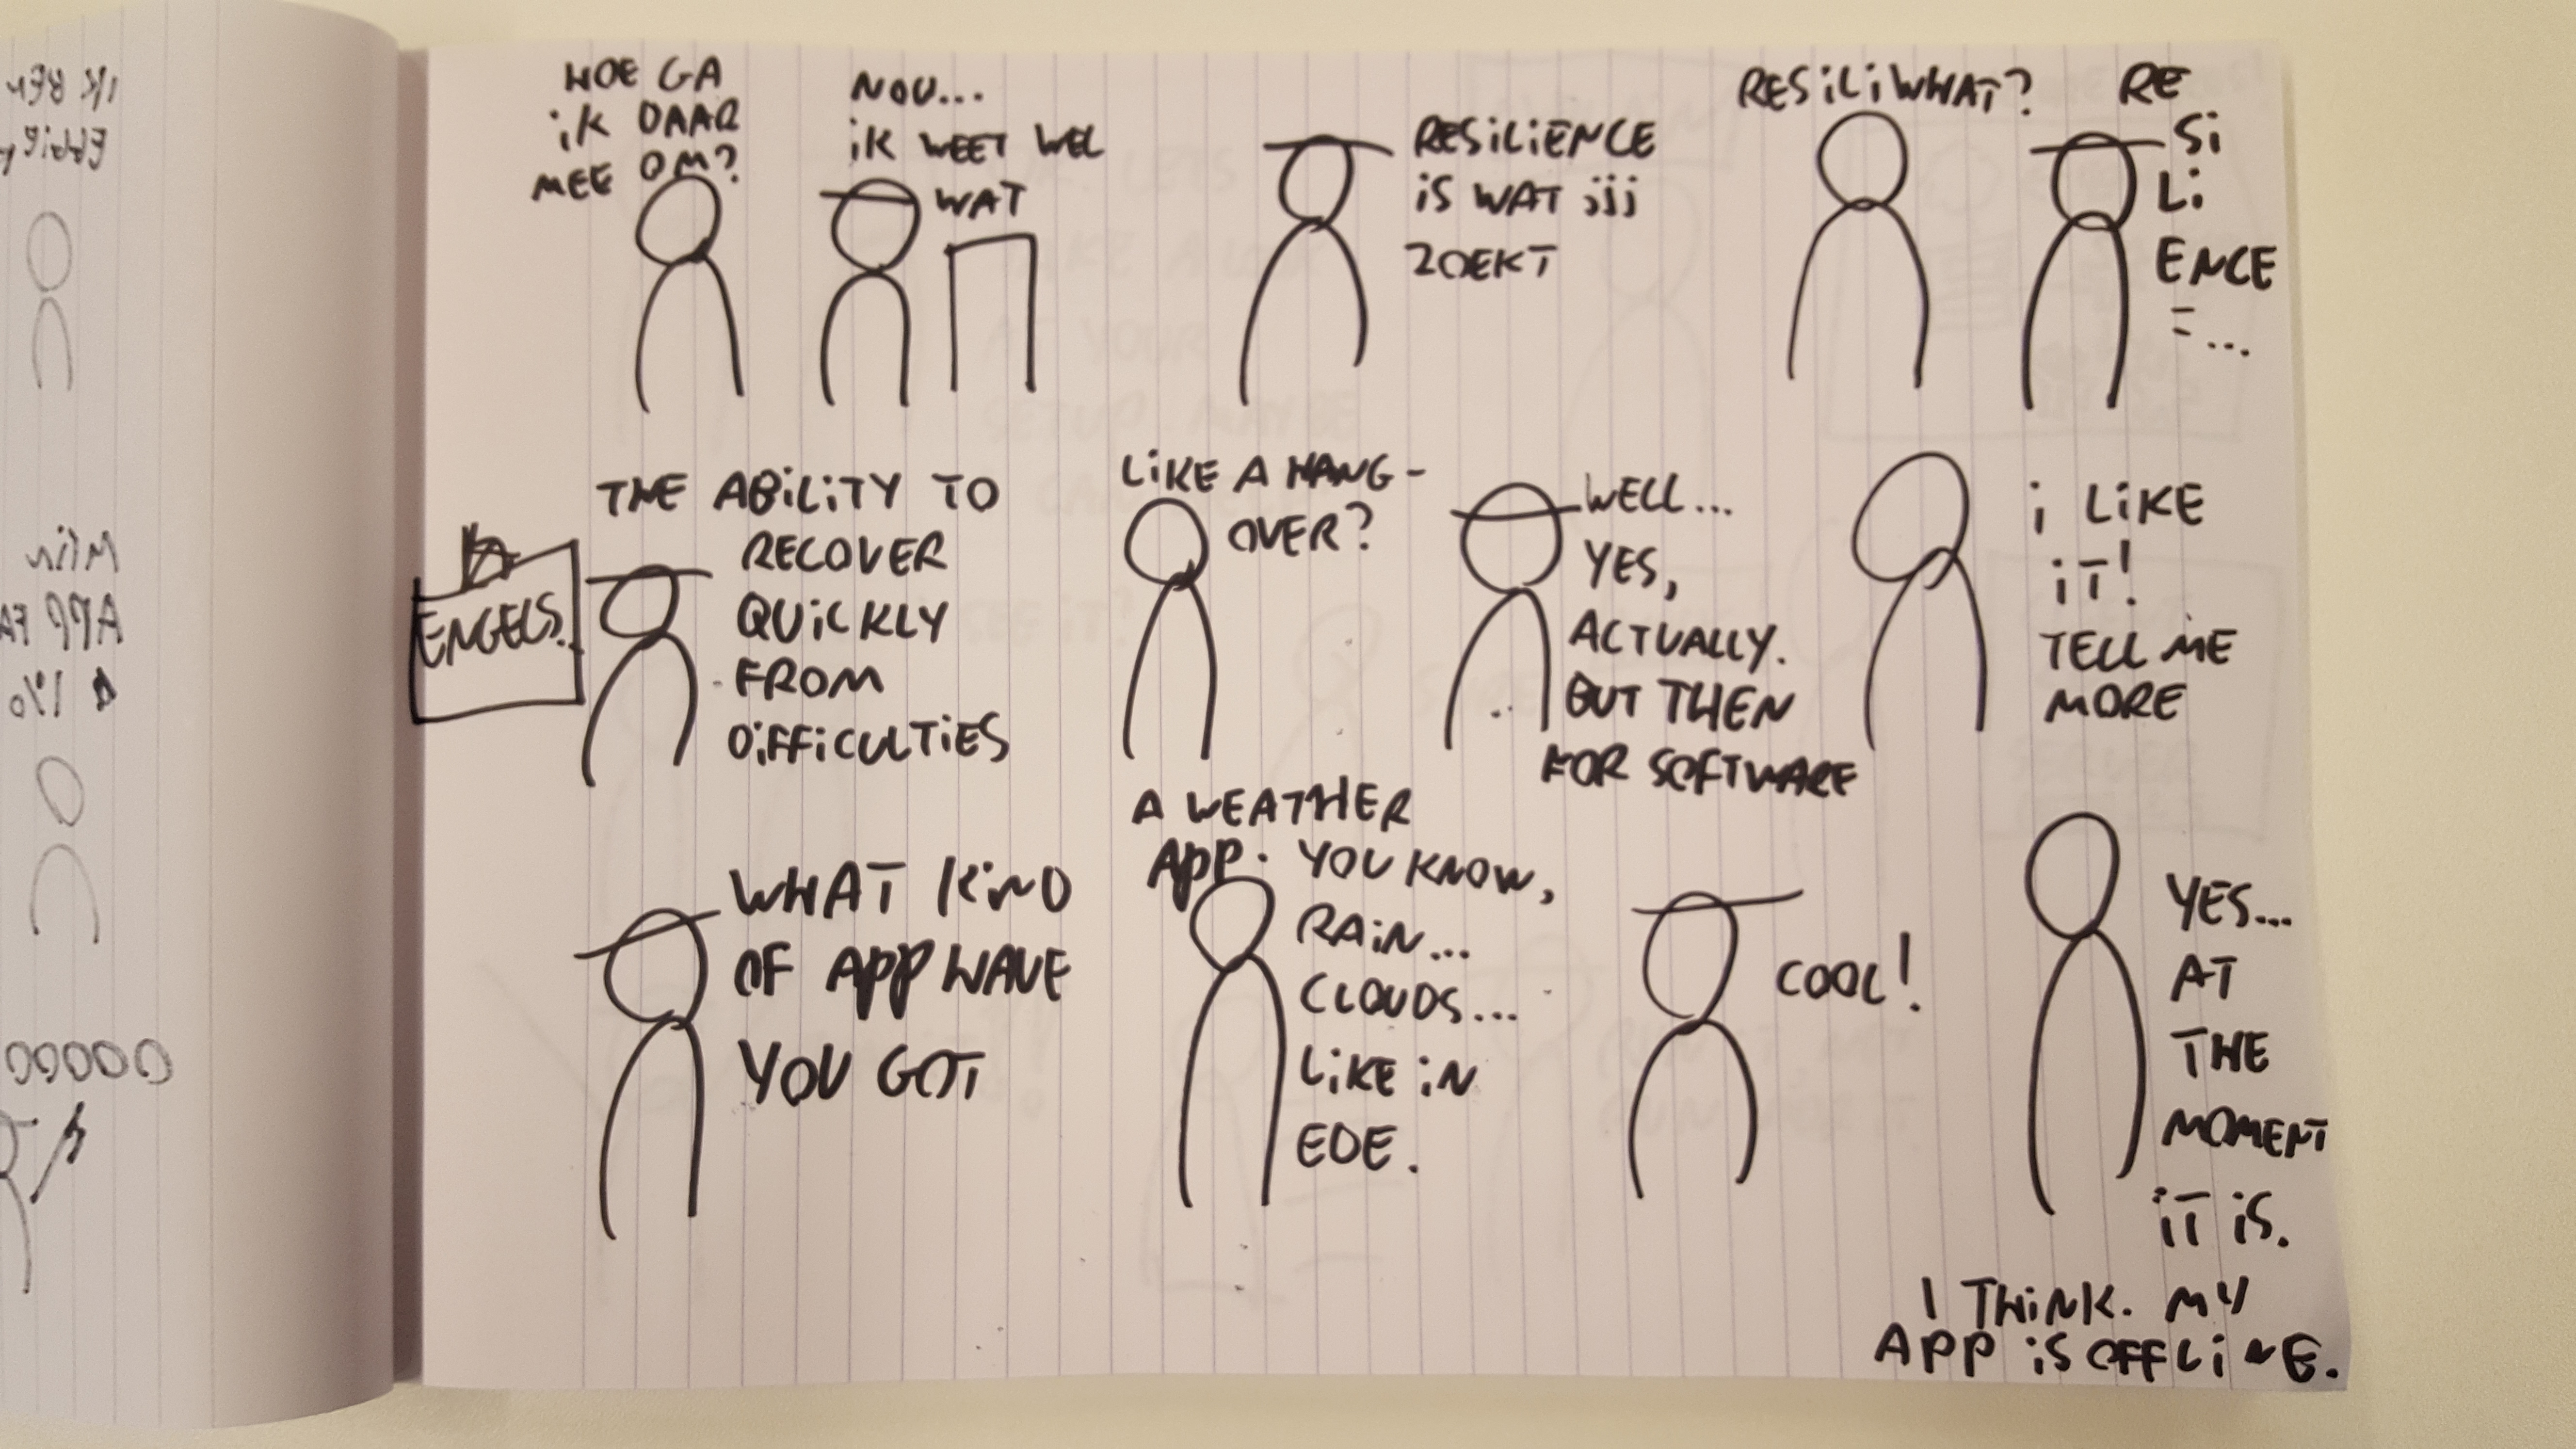 HOE GA
iK DAAR
MEE OM?
NOU...
iK WEET WEL
WAT
RESiLiËNCE
iS WAT JiJ
ZOEKT
RESiLiWHAT?
RE
Si
Li
ENCE
...
ENGELS.
THE ABiLiTY TO
RECOVER
QUiCKLY
FROM
DiFFiCULTiES
LiKE A HANG-
OVER?
WELL...
YES,
ACTUALLY.
BUT THEN
FOR SOFTWARE
i LiKE
iT!
TELL ME
MORE
WHAT KiND
OF APP HAVE
YOU GOT
A WEATHER
APP. YOU KNOW,
RAiN...
CLOUDS...
LiKE iN
EDE.
COOL!
YES...
AT
THE
MOMENT
iT iS.
I THiNK. MY
APP iS OFFLiNE.